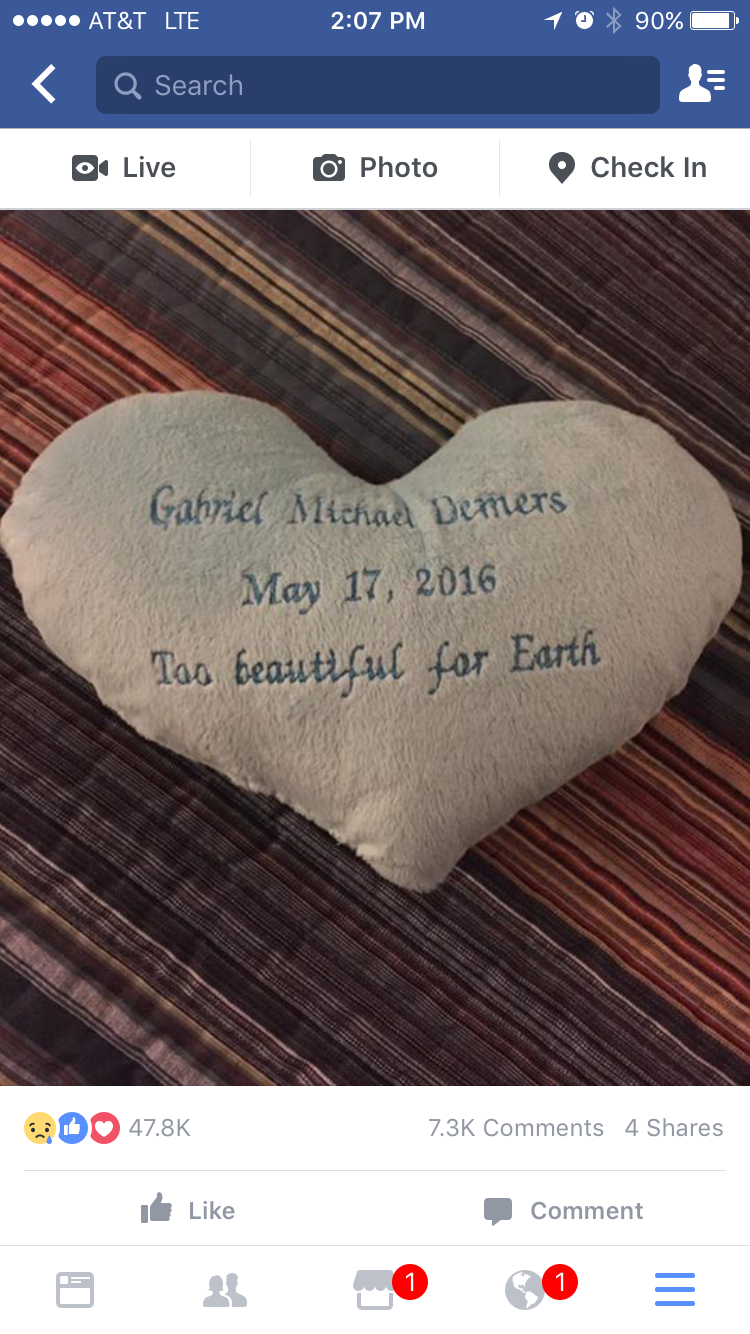 AT&T LTE 2:07 PM 90%
Search
Live Photo Check In
Gabriel Michael Demers
May 17, 2016
Too beautiful for Earth
47.8K 7.3K Comments 4 Shares
Like Comment
1 1